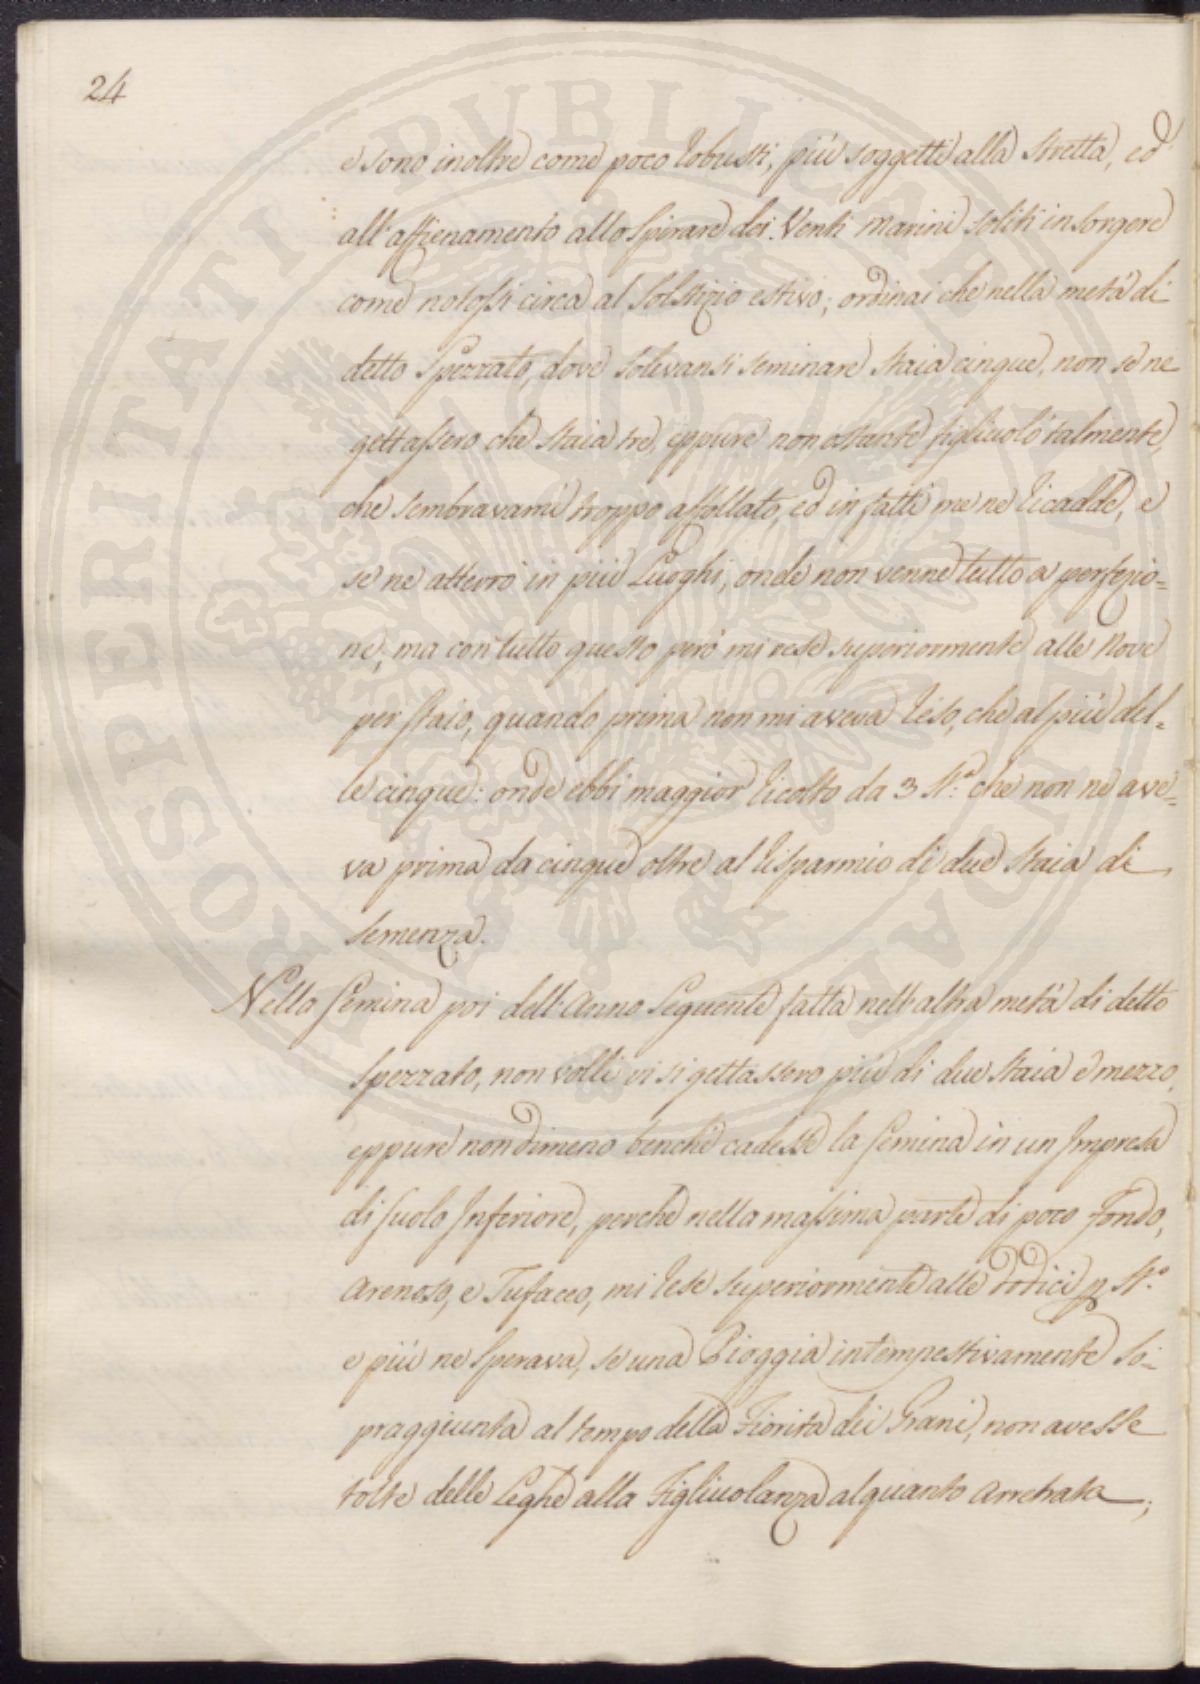 24
e sono inoltre come poco robusti, più soggetti alla stretta, ed
all'affienamento allo spirare dei Venti marini soliti insorgere
come notossi circa al Solstizio estivo; ordinai che nella metà di
detto Spezzato, dove solevansi seminare Staia cinque, non se ne
gettassero che Staia tre, eppure non ostante figliuolò talmente,
che sembravami troppo affollato, ed in fatti me ne ricadde, e
se ne atterrò in più Luoghi, onde non venne tutto a perfezio=
ne, ma con tutto questo però mi rese superiormente alle nove
per Staio, quando prima non mi aveva reso, che al più del=
le cinque: onde ebbi maggior ricolto da 3 St.a che non ne ave=
va prima da cinque oltre al risparmio di due Staia di
semenza.
Nella Semina poi dell'Anno Seguente fatta nell'altra metà di detto
Spezzato, non volli vi si gettassero più di due Staia e mezzo,
eppure nondimeno benchè cadesse la Semina in un Impresa
di Suolo Inferiore, perchè nella massima parte di poco Fondo,
Arenoso, e Tufaceo, mi rese superiormente alle Dodici p St.o
e più ne sperava, se una Pioggia intempestivamente So=
praggiunta al tempo della Fiorita dei Grani, non avesse
tolte delle Leghe alla Figliuolanza alquanto Arretrata;
PROSPERITATI PUBLICAE AUGENDAE